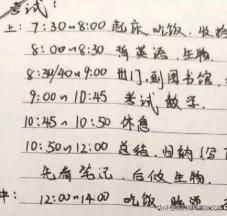 考试:
上: 7:30~8:00 起床 吃饭, 收拾
8:00~8:30 英语, 生物
8:30/40~9:00 出门, 到图书馆,
9:00~10:45 考试 数学.
10:45~10:50 休息
10:50~12:00 总结, 归纳 (写
先看笔记, 后做生物.
中: 12:00~14:00 吃饭